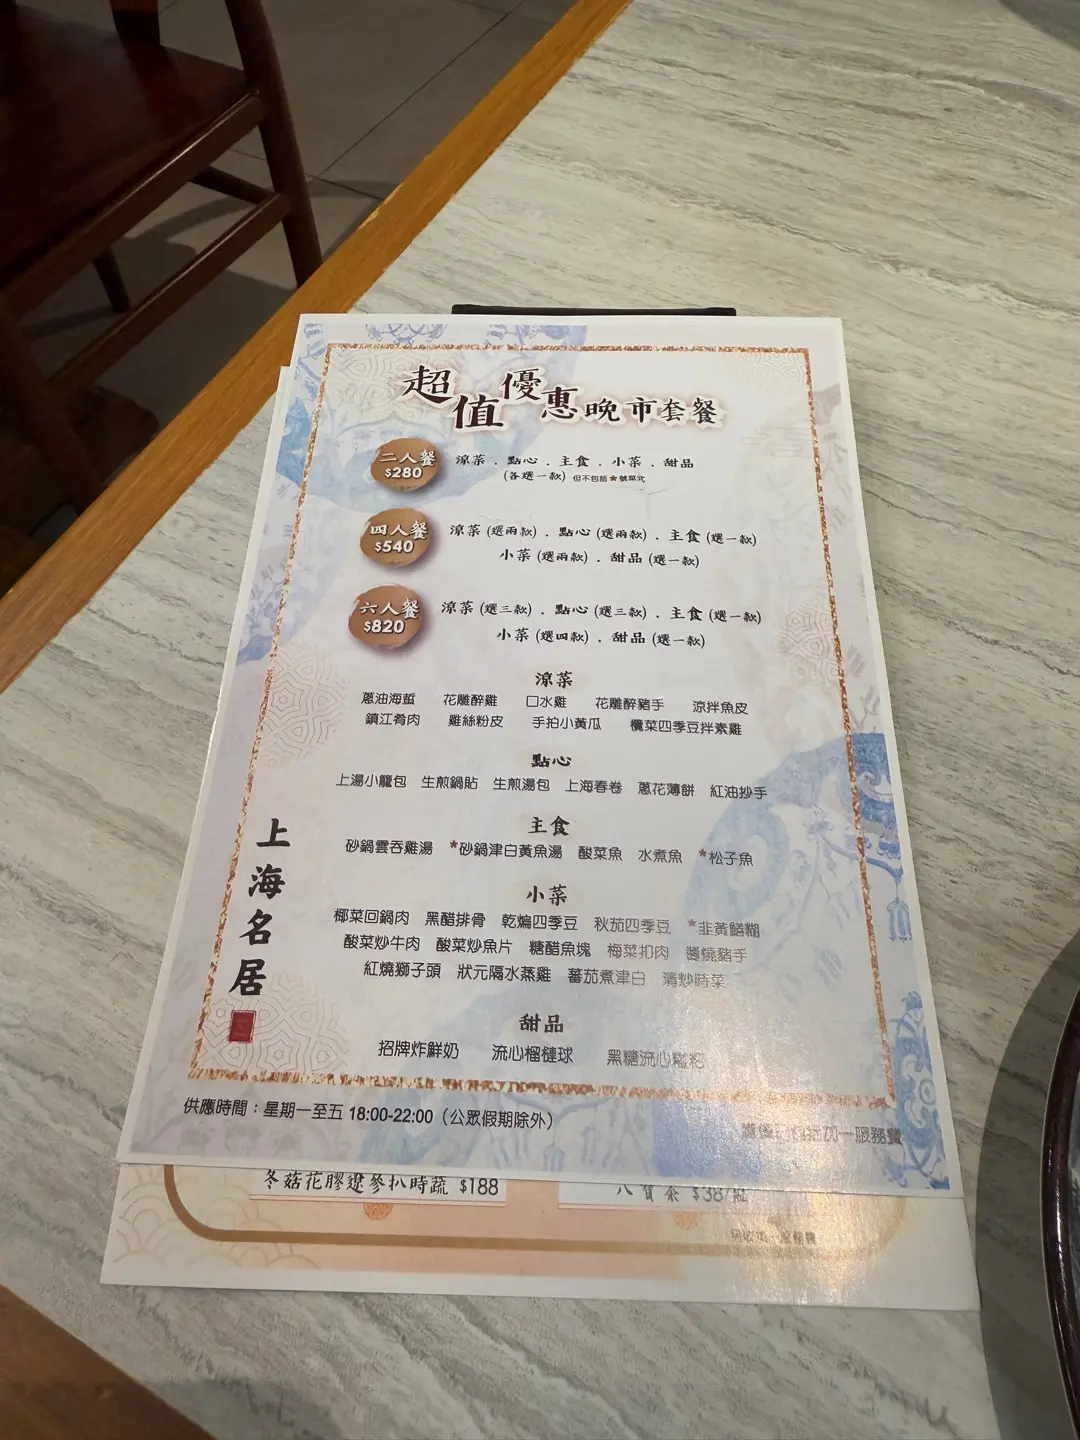 超值優惠晚市套餐
二人餐
$280
涼菜．點心．主食．小菜．甜品
(各選一款) 但不包括★號菜式
四人餐
$540
涼菜 (選兩款)．點心 (選兩款)．主食 (選一款)
小菜 (選兩款)．甜品 (選一款)
六人餐
$820
涼菜 (選三款)．點心 (選三款)．主食 (選一款)
小菜 (選四款)．甜品 (選一款)
涼菜
蔥油海蜇 花雕醉雞 口水雞 花雕醉豬手 涼拌魚皮
鎮江肴肉 雞絲粉皮 手拍小黃瓜 欖菜四季豆拌素雞
點心
上湯小籠包 生煎鍋貼 生煎湯包 上海春卷 蔥花薄餅 紅油抄手
主食
砂鍋雲吞雞湯 *砂鍋津白黃魚湯 酸菜魚 水煮魚 *松子魚
小菜
椰菜回鍋肉 黑醋排骨 乾煸四季豆 秋茄四季豆 *韭黃鱔糊
酸菜炒牛肉 酸菜炒魚片 糖醋魚塊 梅菜扣肉 醬燒豬手
紅燒獅子頭 狀元隔水蒸雞 蕃茄煮津白 清炒時菜
甜品
招牌炸鮮奶 流心榴槤球 黑糖流心糍粑
上海名居
供應時間：星期一至五 18:00-22:00（公眾假期除外）
加一服務費
冬菇花膠遼參扒時蔬 $188
八寶茶 $38/位